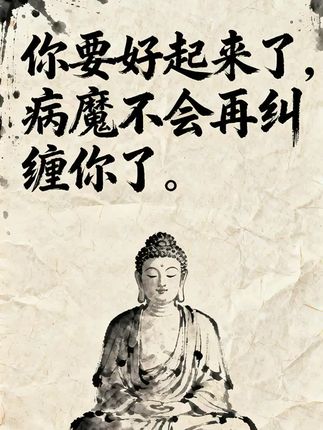 你要好起来了,
病魔不会再纠
缠你了。